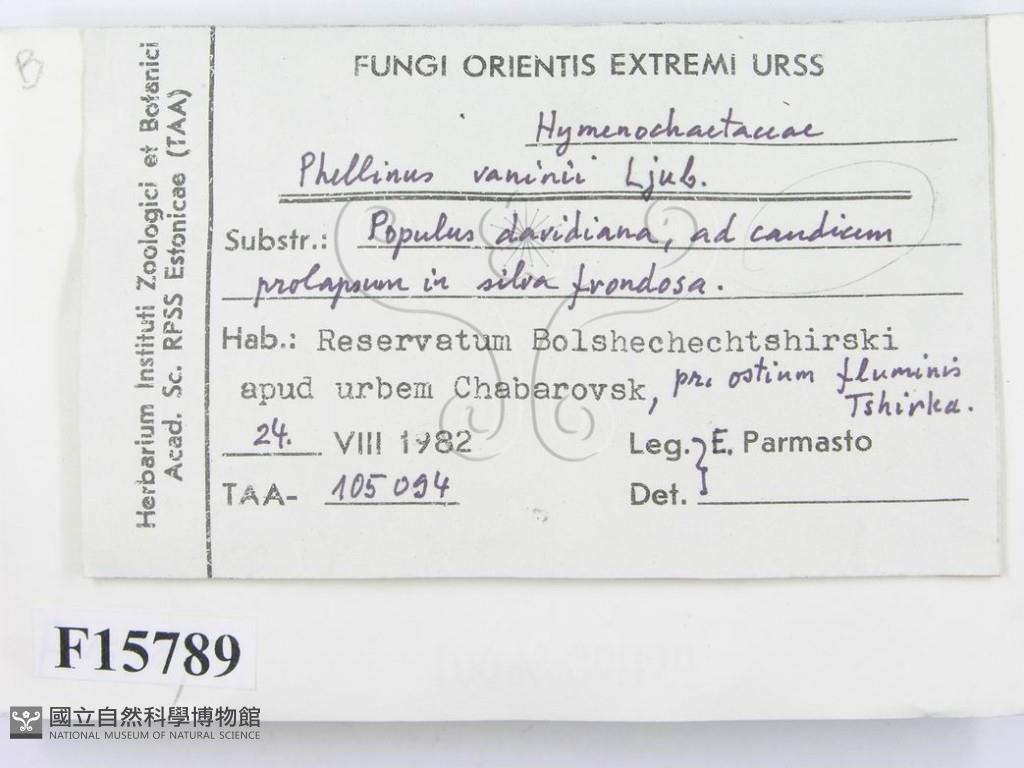 B
Herbarium Instituti Zoologici et Botanici
Acad. Sc. RPSS Estonicae (TAA)
FUNGI ORIENTIS EXTREMI URSS
Hymenochaetaceae
Phellinus vaninii Ljub.
Substr.: Populus davidiana, ad caudicem
prolapsum in silva frondosa.
Hab.: Reservatum Bolshechechtshirski
apud urbem Chabarovsk, pr. ostium fluminis
Tshirka.
24. VIII 1982
Leg. E. Parmasto
TAA- 105094
Det.
F15789
國立自然科學博物館
NATIONAL MUSEUM OF NATURAL SCIENCE